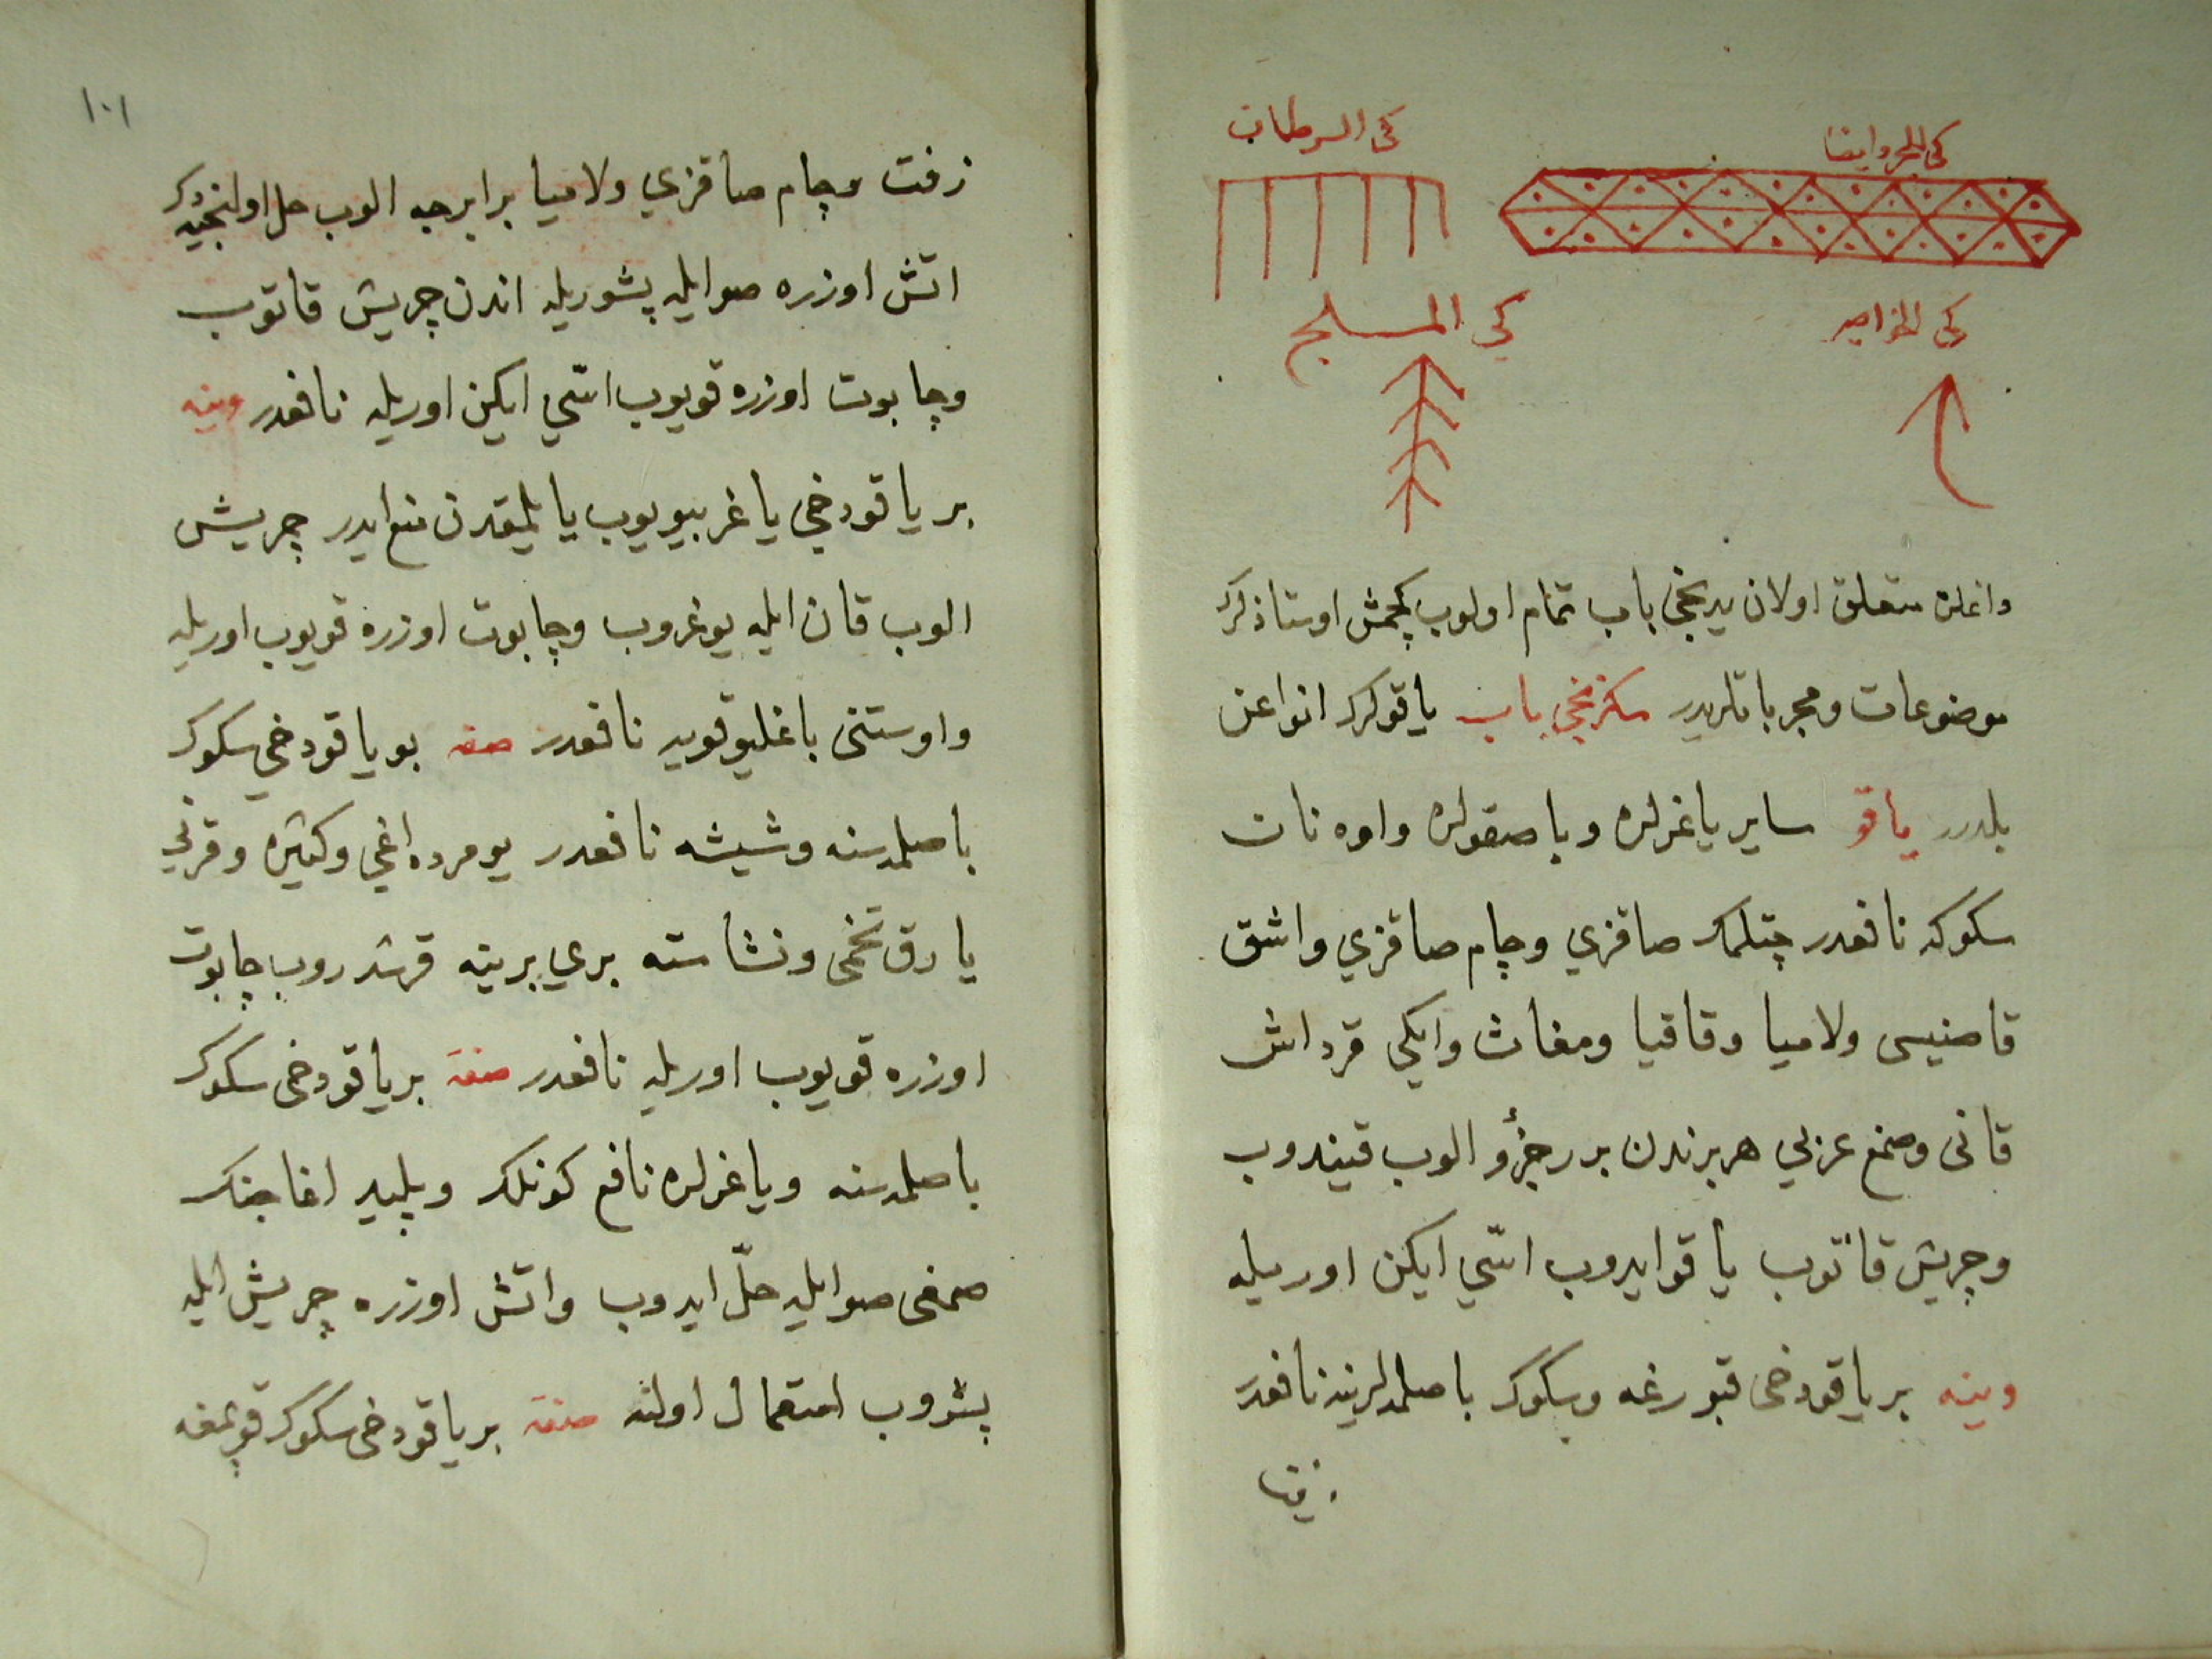 كى السرطان
كى الجر وايضا
كي المسلج
كى الخواصر
داغلره متعلق اولان يدنجى باب تمام اولوب كچمش اوستاذلرك
موضوعات ومجرباتلريدر سكزنجى باب ياقولرك انواعن
بلدرر ياقو ساير ياغرلره وباصقولره واوه نات
سكوكه نافعدر چتلمك صاقزي وچام صاقزي واشق
قاصنيسى ولاميا وقاقيا ومغاث وايكي قرداش
قانى وصمغ عربي هر برندن برر جزؤ الوب قيندوب
وچريش قاتوب ياقو ايدوب اسّي ايكن اوريله
وينه بر ياقو دخى قبورغه وسكوك باصلمه لرينه نافعدر
زفتا
١٠١
زفت وچام صاقزي ولاميا برابرجه الوب حل اولنجيه دك
اتش اوزره صو ايله پشوريله اندن چريش قاتوب
وچابوت اوزره قويوب اسّي ايكن اوريله نافعدر وينه
بر ياقو دخي ياغر بيويوب يايلمقدن منع ايدر چريش
الوب قان ايله يوغروب وچابوت اوزره قويوب اوريله
واوستنى باغليوقويه نافعدر صفة بو ياقو دخي سكوك
باصلمه سنه وشيشه نافعدر يومرده اغي وكتيره وقرني
يارق تخمى ونشاسته بري برينه قرشدروب چابوت
اوزره قويوب اوريله نافعدر صفة بر ياقو دخى سكوك
باصلمه سنه وياغرلره نافع كونلك وپليد اغاجنك
صمغى صو ايله حلّ ايدوب واتش اوزره چريش ايله
پشروب استعمال اولنه صفة بر ياقو دخى سكوك قوپمغه